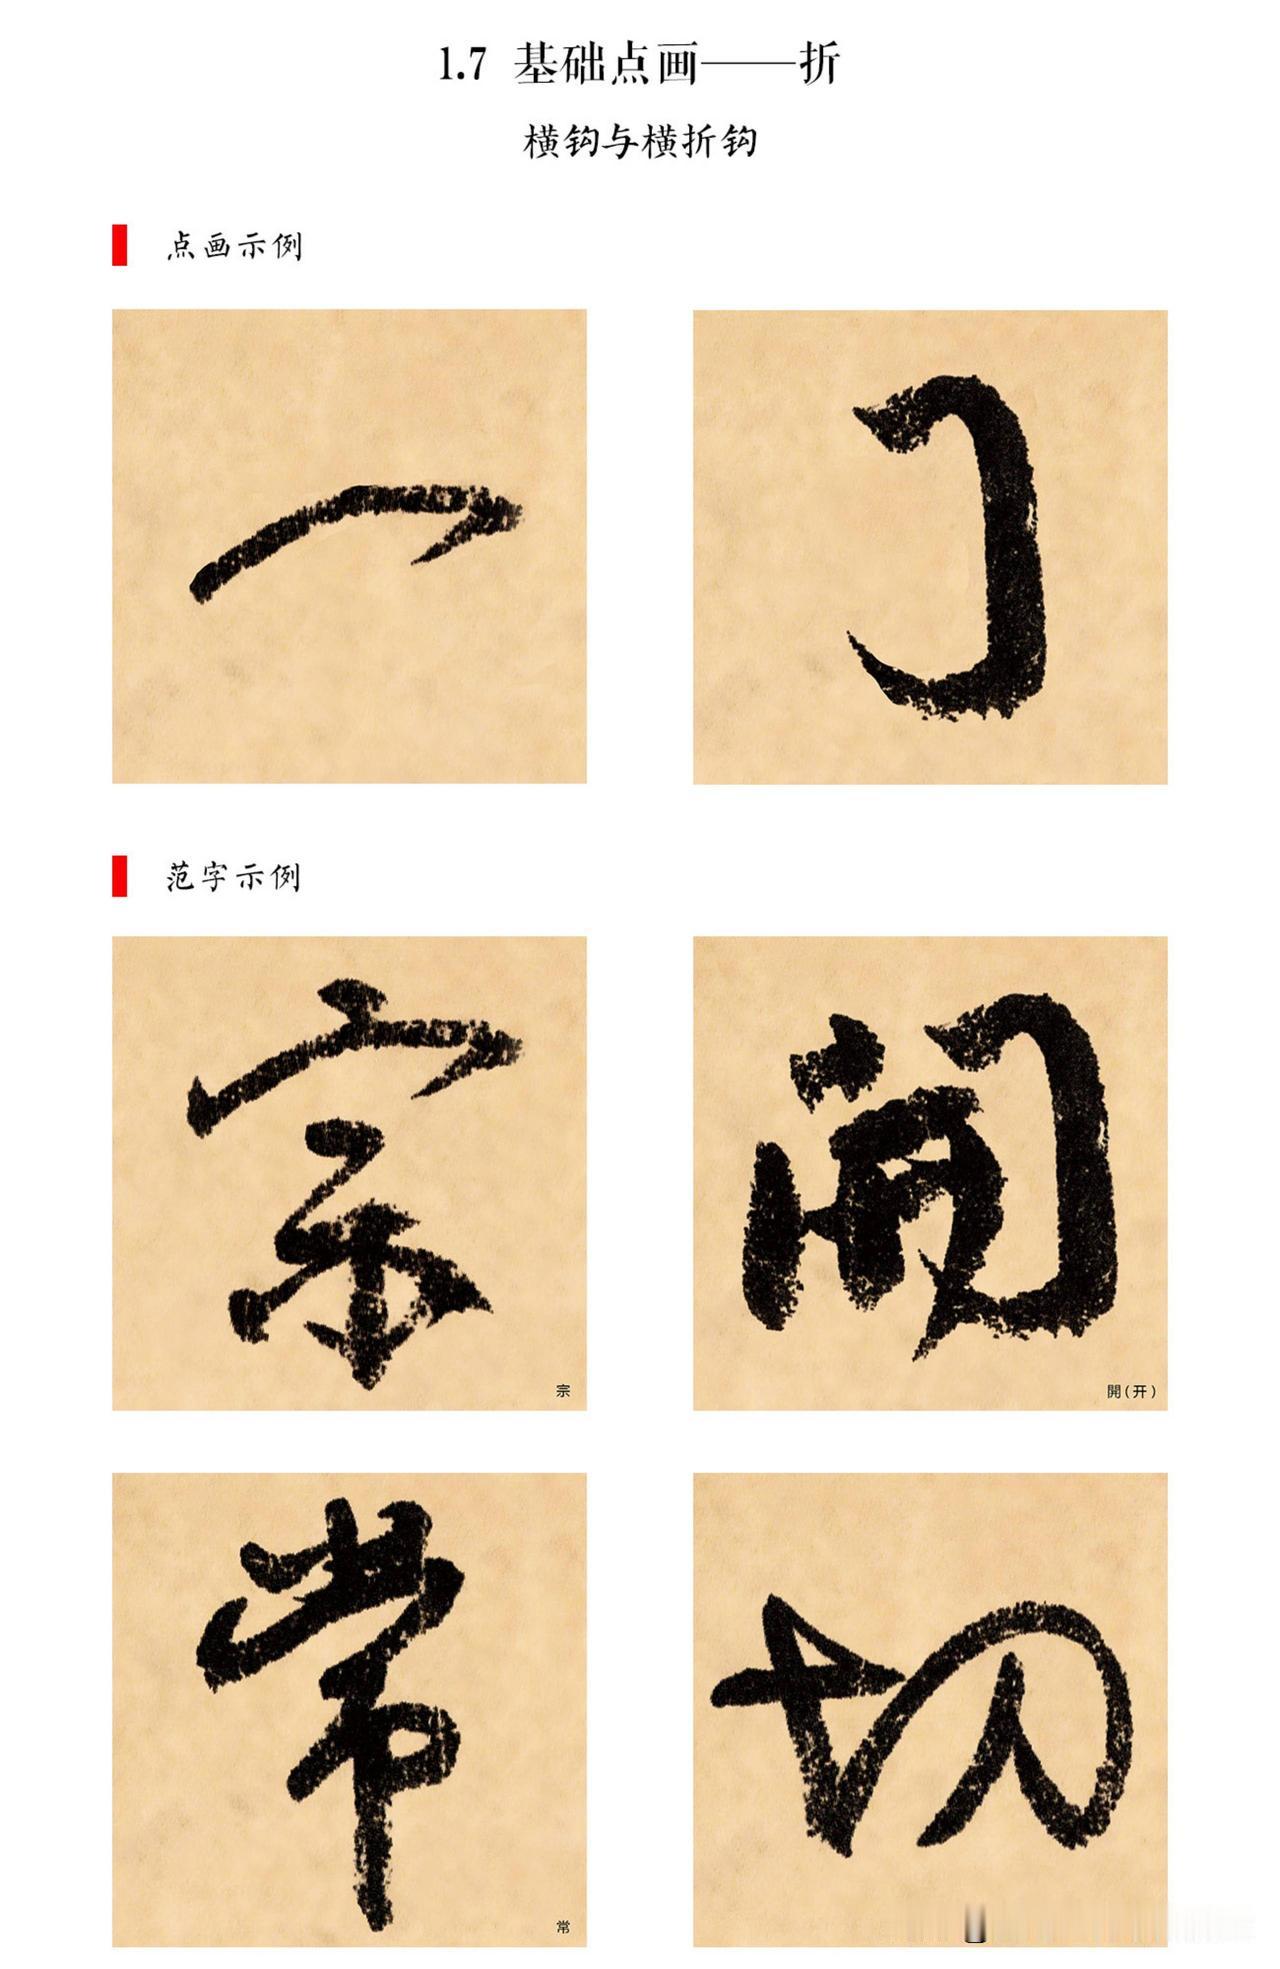 1.7 基础点画——折
横钩与横折钩
点画示例
范字示例
宗
開
宗
開(开)
常
切
常